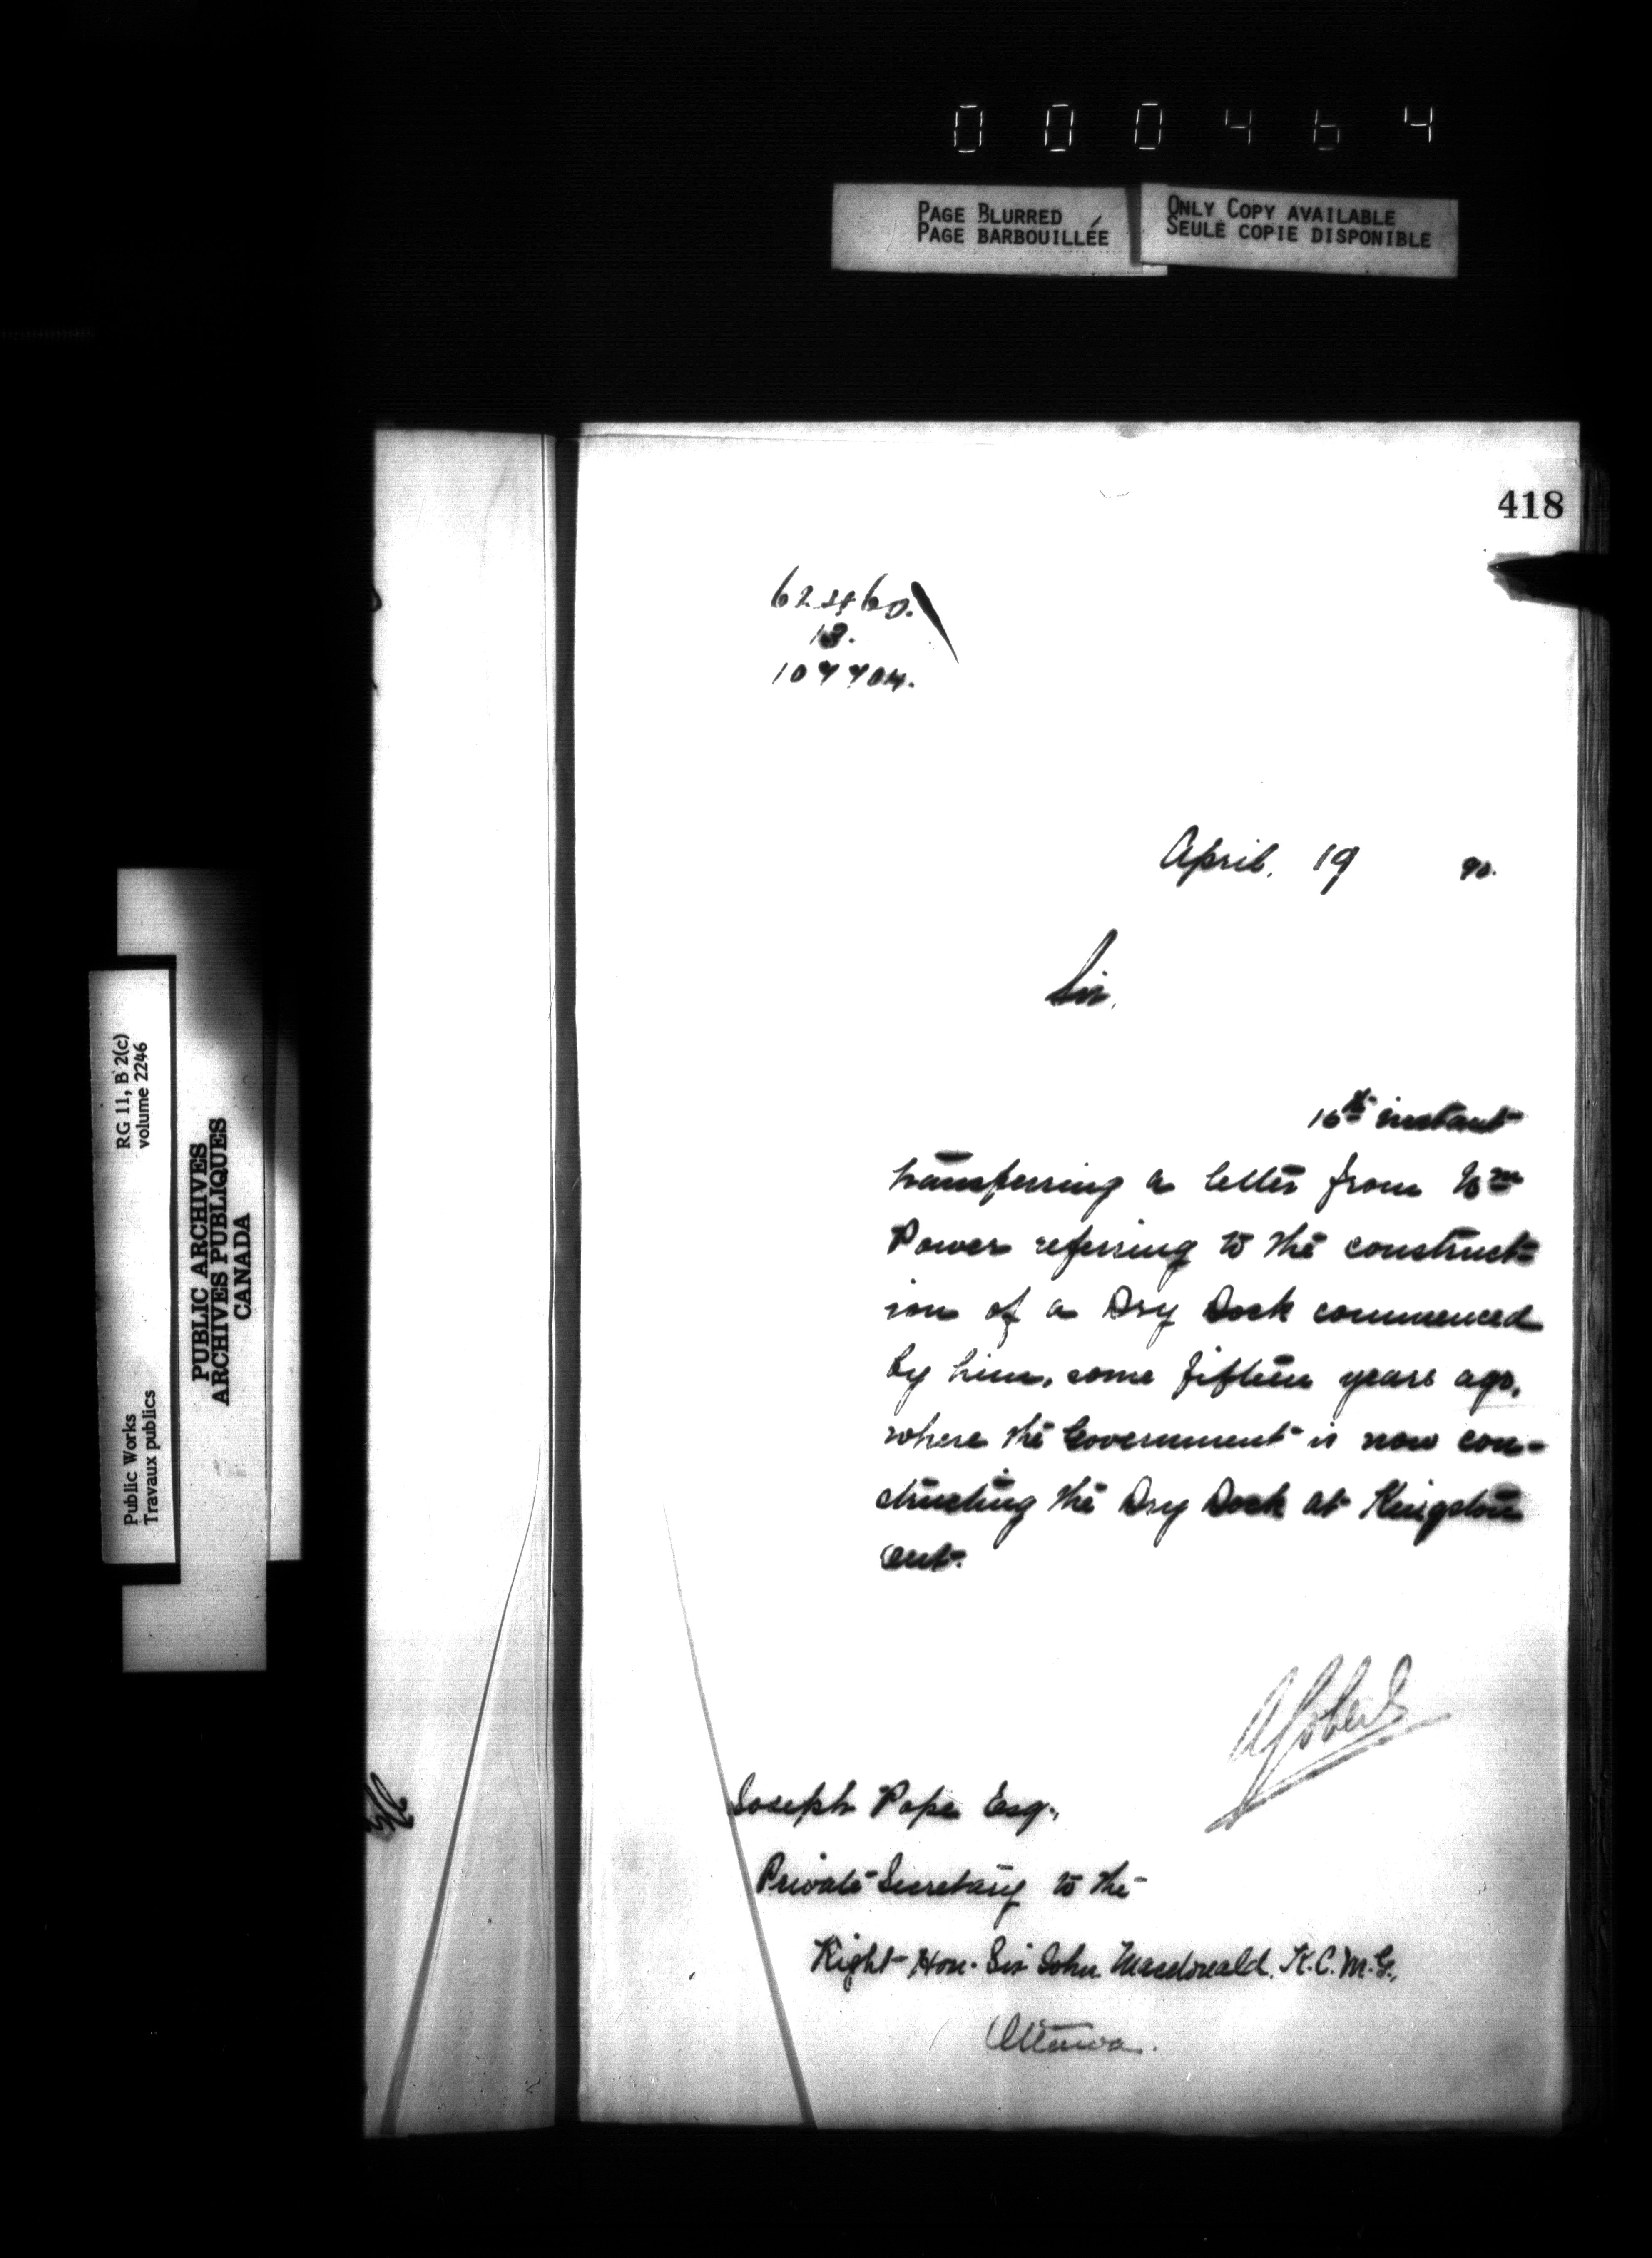 000464
PAGE BLURRED
PAGE BARBOUILLÉE
ONLY COPY AVAILABLE
SEULE COPIE DISPONIBLE
418
62460.
18.
107704.
April. 19 90.
Sir,
16th instant
transferring a letter from Wm
Power referring to the construct=
ion of a Dry Dock commenced
by him, some fifteen years ago,
where the Government is now con-
structing the Dry Dock at Kingston
Ont.
AGobeil
Joseph Pope Esq.,
Private Secretary to the
Right Hon. Sir John Macdonald. K.C.M.G.,
Ottawa.
RG 11, B 2(c)
volume 2246
Public Works
Travaux publics
PUBLIC ARCHIVES
ARCHIVES PUBLIQUES
CANADA